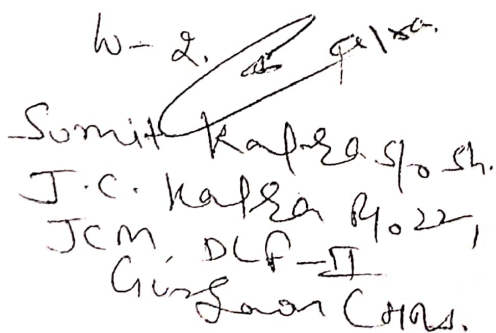 W-2.
Sumit Kapra S/o Sh.
J.C. Kapra R/o 22,
JCM, DLF-II
Gurgaon (HR).